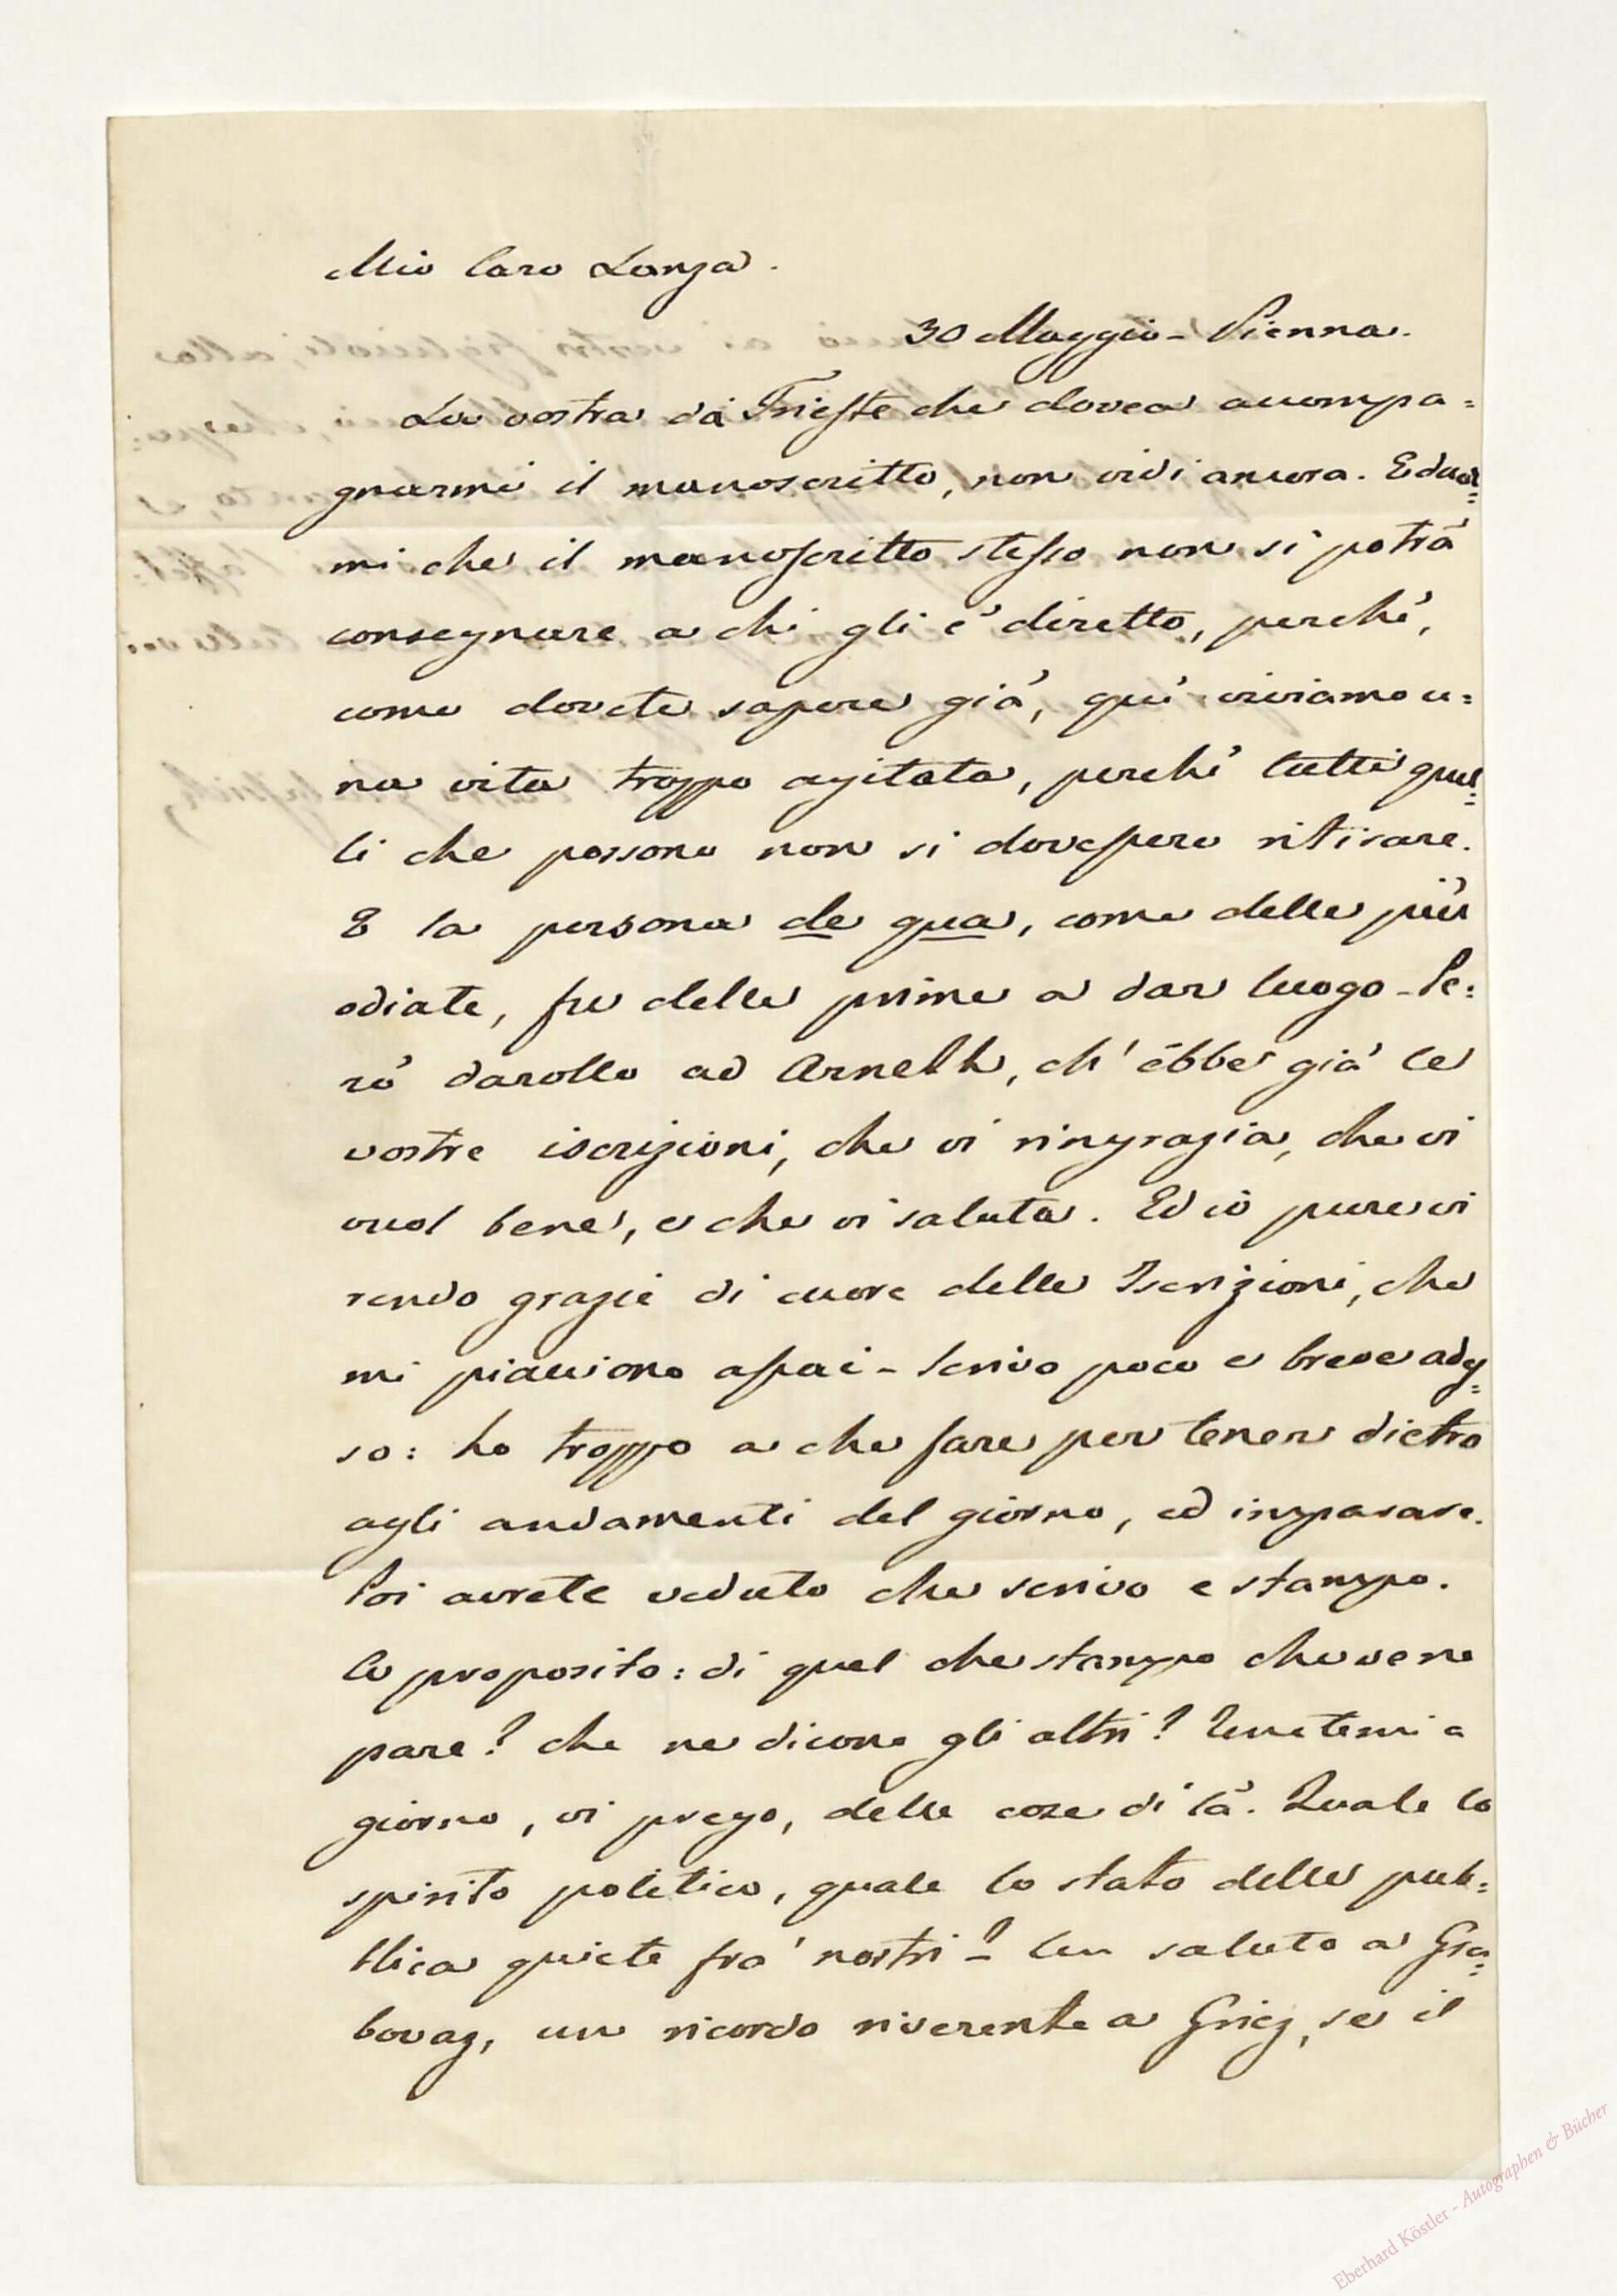 Mio Caro Lanza.
30 Maggio - Vienna.
La vostra da Trieste che dovea accompa=
gnarmi il manoscritto, non vidi ancora. E
mi che il manoscritto stesso non si potrà
consegnare a chi gli è diretto, perchè,
come dovete sapere già, quì viviamo u=
na vita troppo agitata, perchè tutti quel=
li che possono non si dovessero ritirare.
E la persona de qua, come delle più
odiate, fu delle prime a dar luogo - Pe=
rò darollo ad Arneth, ch' ebbe già le
vostre iscrizioni, che vi ringrazia, che vi
vuol bene, e che vi saluta. Ed io pure vi
rendo grazie di cuore delle Iscrizioni, che
mi piacciono assai - Scrivo poco e breve ades=
so: ho troppo a che fare per tener dietro
agli andamenti del giorno, ed imparare.
Voi avrete veduto che scrivo e stampo.
A proposito: di quel che stampo che ve ne
pare? che ne dicono gli altri? Tenetemi a
giorno, vi prego, delle cose di là. Quale lo
spirito politico, quale lo stato della pub=
blica quiete fra' nostri? - Un saluto a Gra=
bovaz, un ricordo riverente a Griez, se il
Eberhard Köstler - Autographen & Bücher